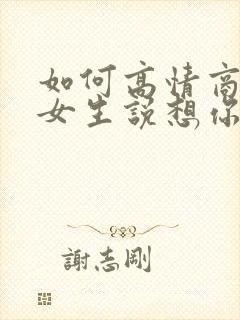 如何高情商
女生说想你
謝志剛